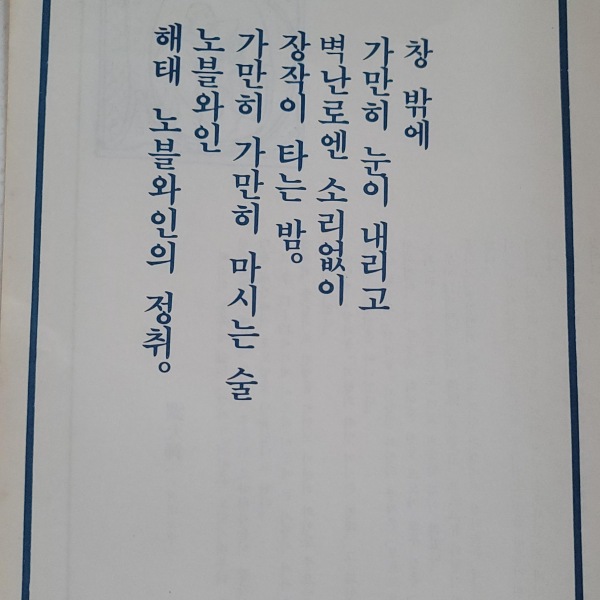 창 밖에
가만히 눈이 내리고
벽난로엔 소리없이
장작이 타는 밤。
가만히 가만히 마시는 술
노블와인
해태 노블와인의 정취。